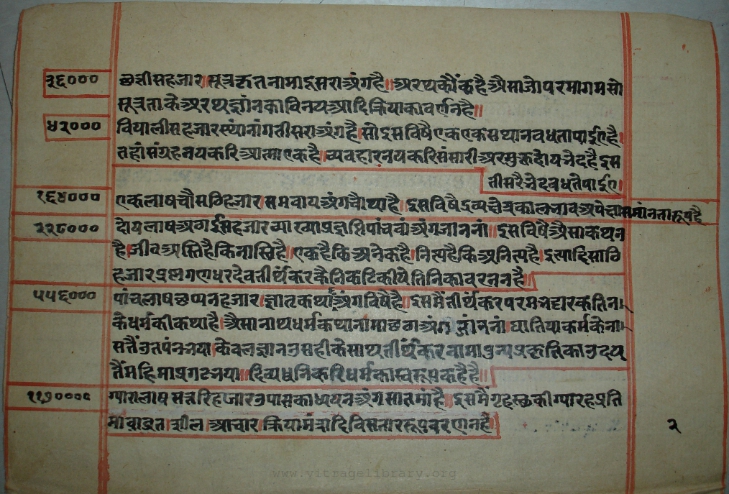 ३६००० छत्तीसहजार। सूत्रकृतनामा दूसरा अंग है। अरथ कौं कहै ऐसा जो परमागम सो
सूत्र ताके अरथ ज्ञान का विनय आदि क्रिया का वर्णन है॥
४२००० वियालीसहजार स्थानांग तीसरा अंग है। सो इस विषै एक एक स्थान वधता पाईए है।
तहां संग्रहनय करि आत्मा एक है। व्यवहारनय करि संसारी अर मुक्त दोय भेद है इस
तीसरै भेद वधते पाईए।
१६४००० एक लाष चौसठिहजार। समवाय अंग चौथा है। इस विषै द्रव्य क्षेत्र काल भाव अपेक्षा समानता कही है
२२८००० दोय लाष अठाईसहजार व्याख्याप्रज्ञप्ति पांचवा अंग जाननां। इस विषै ऐसा कथन
है। जीव अस्ति है कि नास्ति है। एक है कि अनेक है। नित्य है कि अनित्य है। इत्यादि साठि
हजार प्रश्न गणधरदेव तीर्थंकर के निकटि कीये तिनि का वरनन है॥
५५६००० पांच लाष छप्पनहजार। ज्ञातृकथा अंग विषै है। इस में तीर्थंकर परम
के धर्म की कथा है। ऐसा नाथधर्मकथा नामा छठा अंग जाननां। घातिया कर्म के ना
स तैं उतपंन भया। केवलज्ञान उसही के साथ तीर्थंकर नामा पुन्य प्रकृति का उदय
तैं महिमा प्रगट भया॥ दिव्यधुनि करि धर्म का स्वरूप कहै है॥
११७०००० ग्यारा लाष सत्तरिहजार। उपासकाध्ययन अंग सातमां है। इस में गृहस्थ की ग्यारह प्रति
मा वा व्रत। शील। आचार। क्रिया मंत्रादि विस्ताररूप वरणन है॥
२
www.vitragelibrary.org